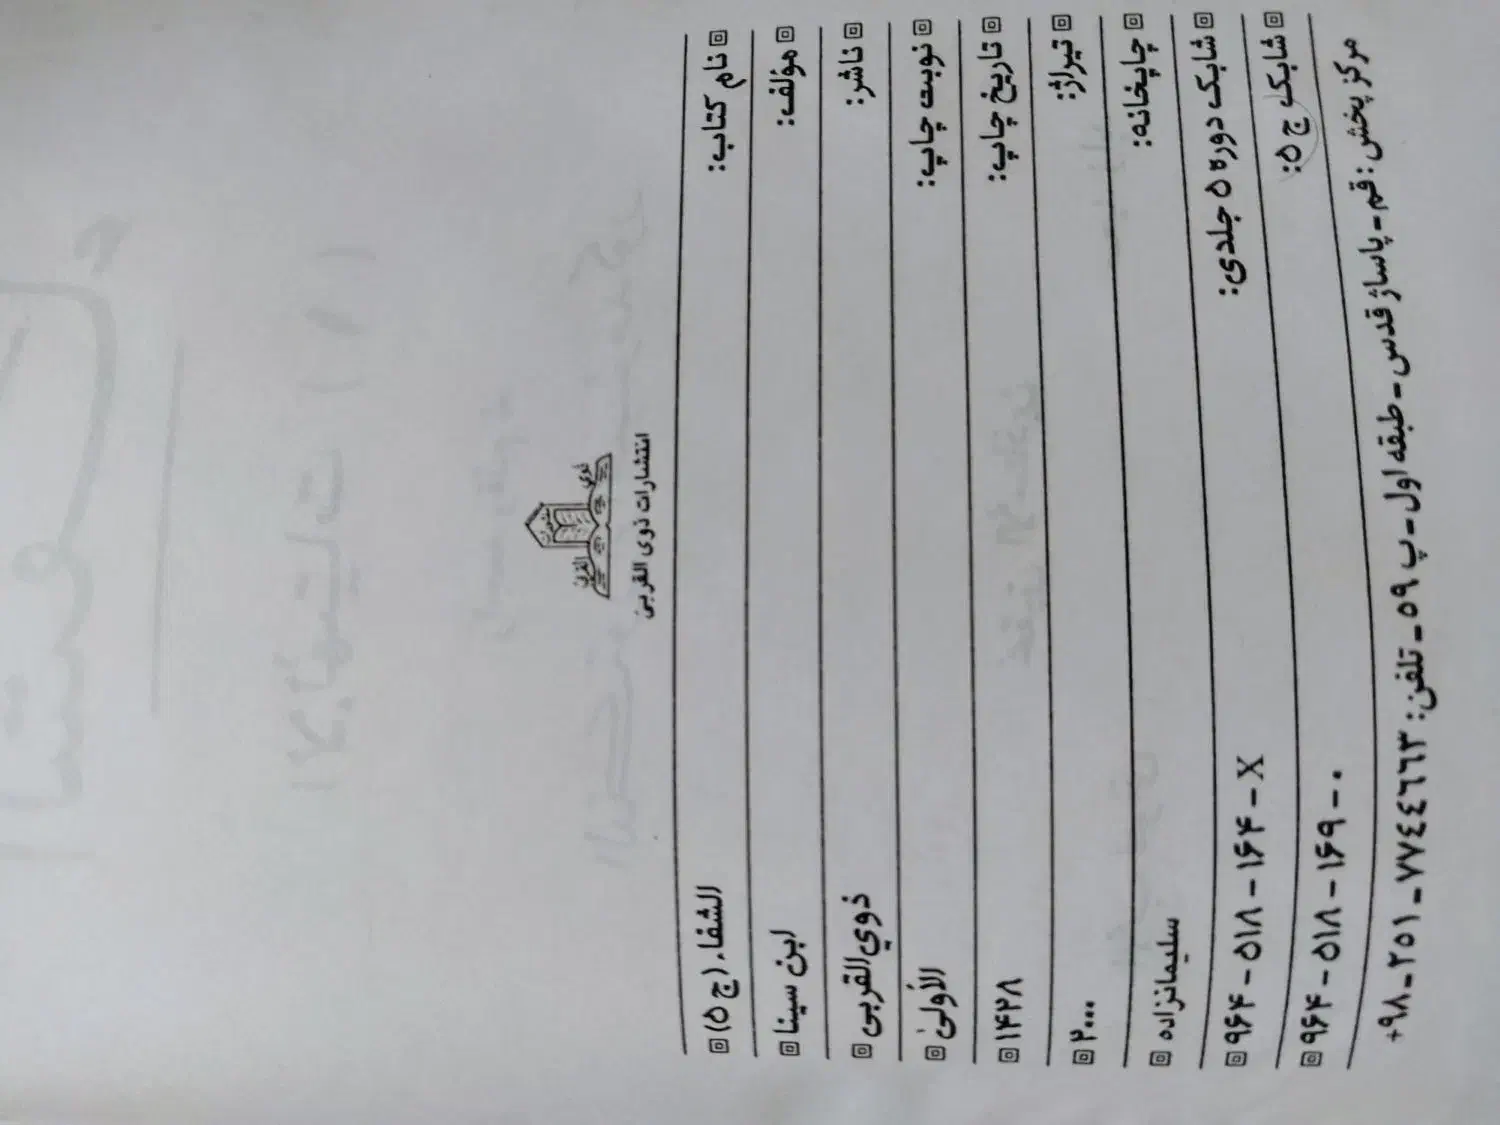 انتشارات ذوی القربی
نام کتاب: الشفاء (ج ۵)
مؤلف: ابن سینا
ناشر: ذوي القربی
نوبت چاپ: الأولیٰ
تاریخ چاپ: ۱۴۲۸
تیراژ: ۲۰۰۰
چاپخانه: سلیمانزاده
شابک دوره ۵ جلدی: ۹۶۴ - ۵۱۸ - ۱۶۴ - X
شابک ج ۵: ۹۶۴ - ۵۱۸ - ۱۶۹ - ۰
مرکز پخش: قم - پاساژ قدس - طبقه اول - پ ۵۹ - تلفن: ۷۷٤٤٦٦۳ - ۲۵۱ - ۹۸+